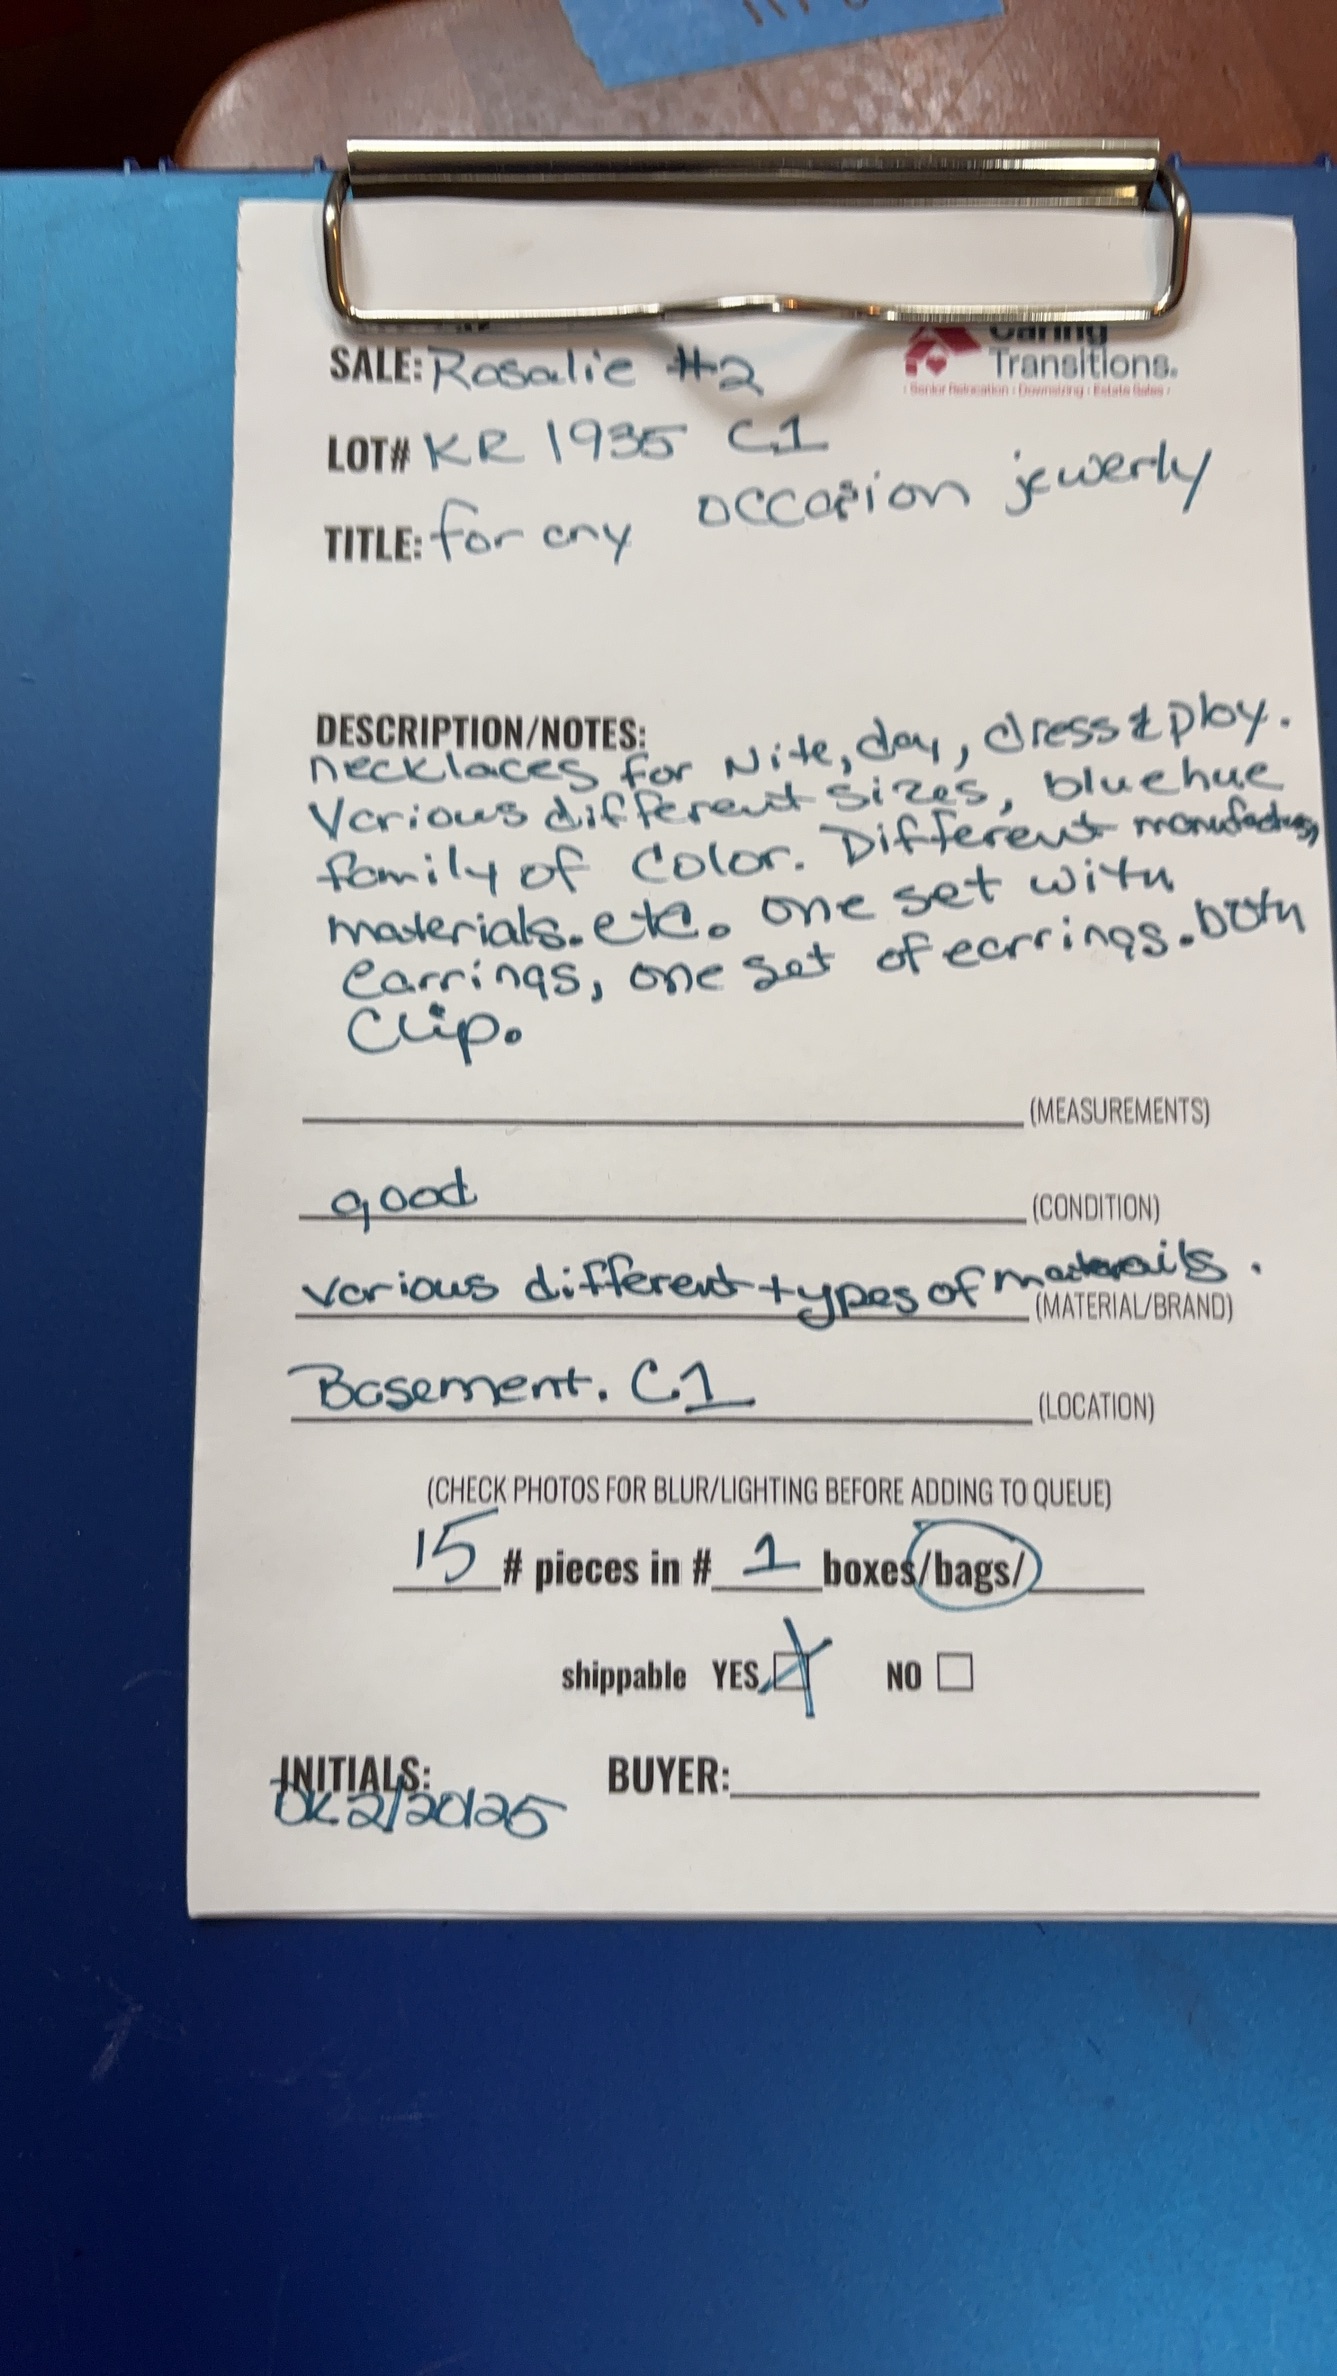 Caring
Transitions.
Senior Relocation · Downsizing · Estate Sales
SALE: Rosalie #2
LOT# KR 1935 C1
TITLE: for any occasion jewerly
DESCRIPTION/NOTES:
necklaces for Nite, day, dress & play.
Various different sizes, bluehue
family of color. Different
materials. etc. one set with
earrings, one set of earrings. both
Clip.
(MEASUREMENTS)
good (CONDITION)
various different types of
(MATERIAL/BRAND)
Basement. C1 (LOCATION)
(CHECK PHOTOS FOR BLUR/LIGHTING BEFORE ADDING TO QUEUE)
15 # pieces in # 1 boxes/bags/
shippable YES NO
INITIALS: BUYER:
DK 2/20/25